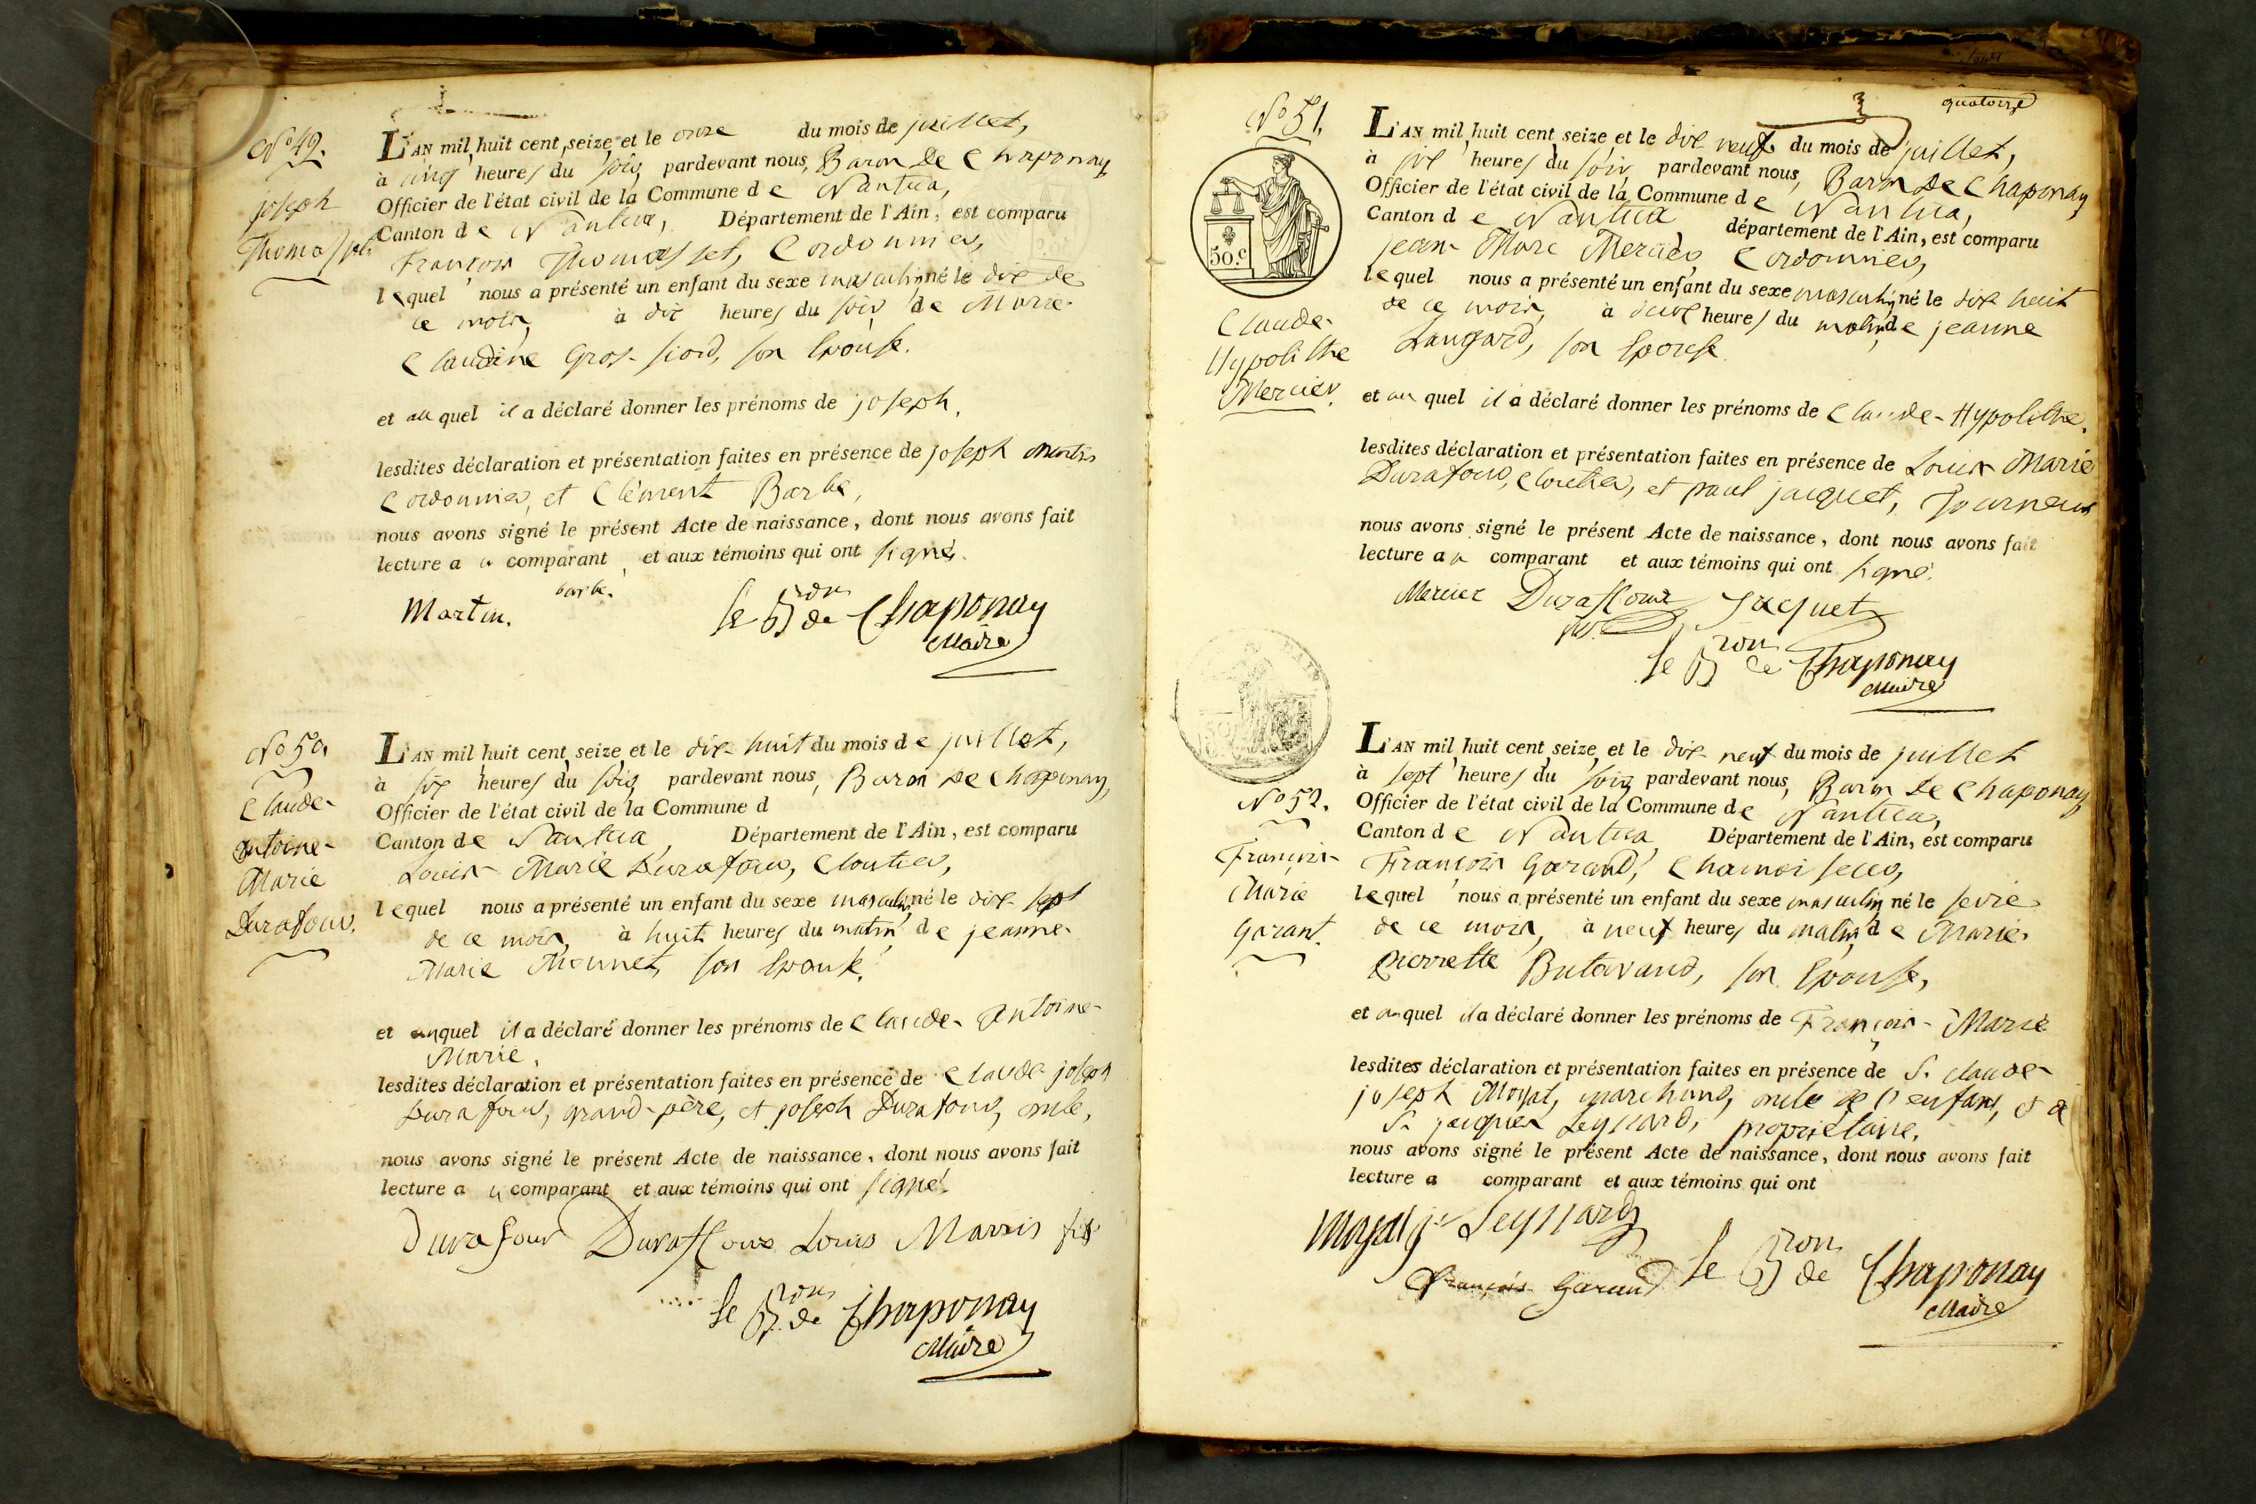 N° 49.
joseph
Thomasset
L'AN mil huit cent seize et le onze du mois de juillet,
à cinq heures du soir pardevant nous, Baron De Chaponay
Officier de l'état civil de la Commune de Nantua,
Canton de Nantua, Département de l'Ain, est comparu
François Thomasset, Cordonnier,
lequel nous a présenté un enfant du sexe masculin né le dix de
ce mois, à dix heures du soir de Marie
Claudine Gros-fiord, son Epouse.
et auquel il a déclaré donner les prénoms de joseph.
lesdites déclaration et présentation faites en présence de joseph
Cordonnier, et Clément Barbe,
nous avons signé le présent Acte de naissance, dont nous avons fait
lecture au comparant et aux témoins qui ont signé.
barbe.
Martin. le Bron de Chaponay
Maire
N° 50.
Claude-
Antoine-
Marie
Durafour.
L'AN mil huit cent seize et le dix-huit du mois de juillet,
à six heures du soir pardevant nous, Baron De Chaponay,
Officier de l'état civil de la Commune d
Canton de Nantua, Département de l'Ain, est comparu
Louis-Marie Durafour, Cloutier,
lequel nous a présenté un enfant du sexe masculin né le dix-sept
de ce mois, à huit heures du matin de jeanne-
Marie Monnet, son Epouse.
et auquel il a déclaré donner les prénoms de Claude-Antoine-
Marie.
lesdites déclaration et présentation faites en présence de Claude joseph
Durafour, grand-père, et joseph Durafour, oncle,
nous avons signé le présent Acte de naissance, dont nous avons fait
lecture au comparant et aux témoins qui ont signé.
Durafour Duraffour Louis Marris fils
le Bron de Chaponay
Maire
quatorze
N° 51.
50.c
Claude-
Hypolithe
Mercier.
L'AN mil huit cent seize et le dix neuf du mois de juillet,
à six heures du soir pardevant nous, Baron De Chaponay
Officier de l'état civil de la Commune de Nantua,
Canton de Nantua département de l'Ain, est comparu
jean-Marc Mercier, Cordonnier,
lequel nous a présenté un enfant du sexe masculin né le dix huit
de ce mois, à onze heures du matin de jeanne
Langard, son Epouse.
et auquel il a déclaré donner les prénoms de Claude-Hypolithe.
lesdites déclaration et présentation faites en présence de Louis Marie
Durafour, Cloutier, et paul jacquet, Tourneur
nous avons signé le présent Acte de naissance, dont nous avons fait
lecture au comparant et aux témoins qui ont signé.
Mercier Duraffour Jacquet
fils
le Bron de Chaponay
Maire
N° 52.
François-
Marie
Garant.
L'AN mil huit cent seize et le dix-neuf du mois de juillet
à sept heures du soir pardevant nous, Baron De Chaponay
Officier de l'état civil de la Commune de Nantua,
Canton de Nantua, Département de l'Ain, est comparu
François Garand, Chamoiseur,
lequel nous a présenté un enfant du sexe masculin né le seize
de ce mois, à neuf heures du matin de Marie
pierrette Butavand, son Epouse,
et auquel il a déclaré donner les prénoms de François-Marie
lesdites déclaration et présentation faites en présence de Sr. Claude-
joseph Moyat, marchand, oncle de l'enfant, et de
Sr. jacques Leyssard, propriétaire.
nous avons signé le présent Acte de naissance, dont nous avons fait
lecture a comparant et aux témoins qui ont
Moyat Leyssard
François Garand le Bron de Chaponay
Maire